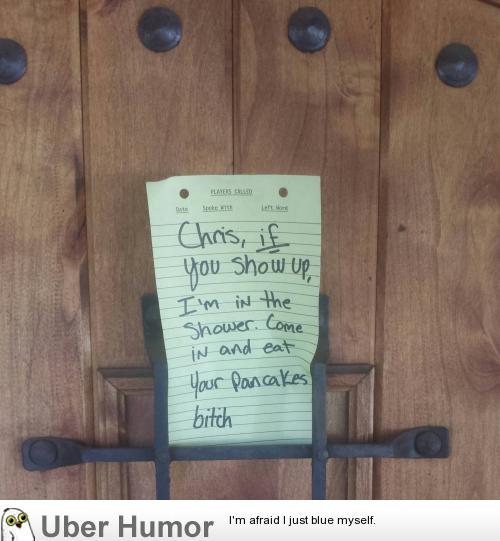 PLAYERS CALLED
Date Spoke With Left Word
Chris, if
you show up,
I'm in the
shower. Come
in and eat
your pancakes
bitch
Uber Humor
I'm afraid I just blue myself.